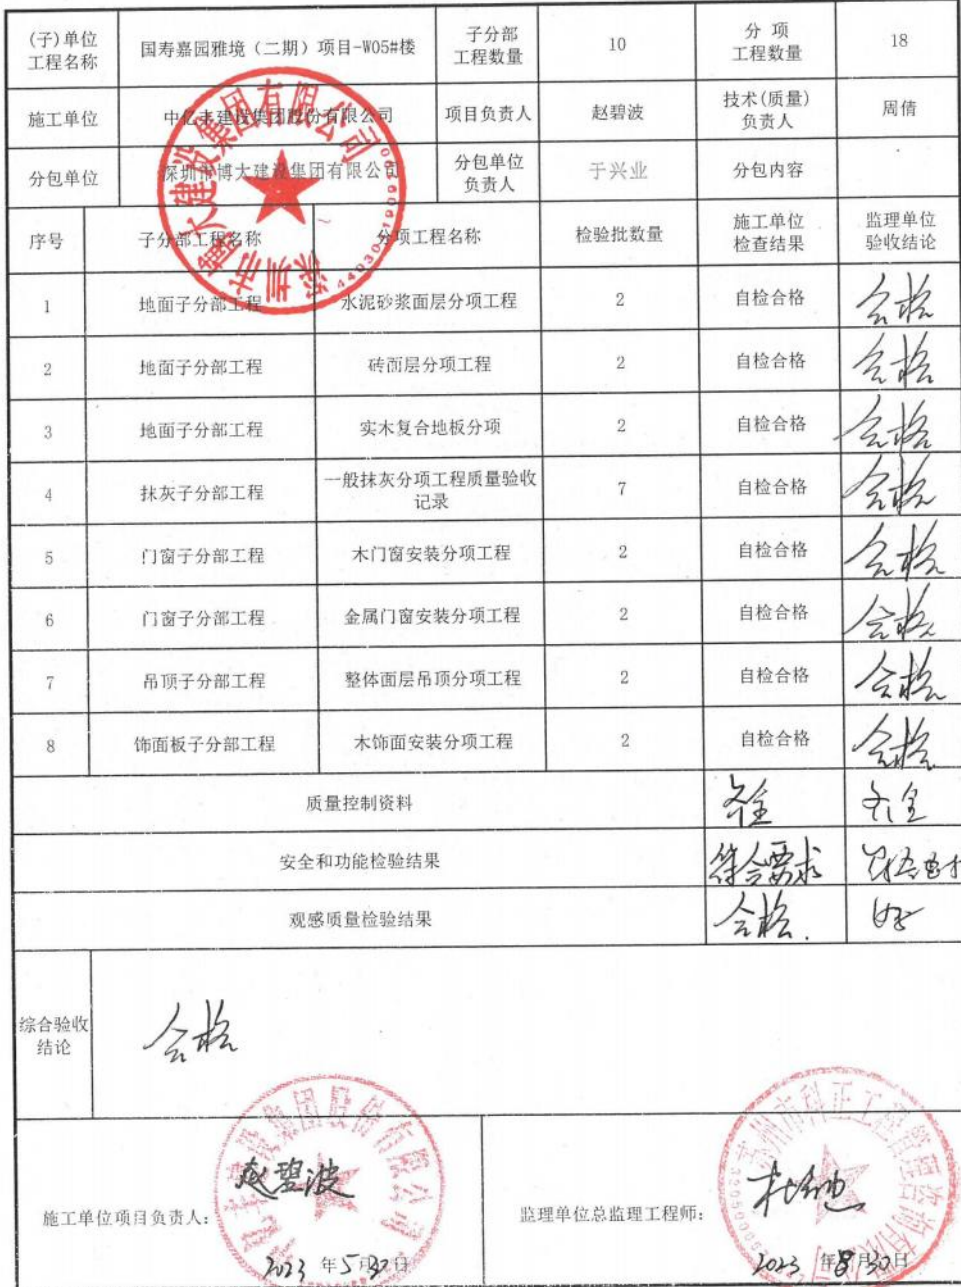 (子)单位
工程名称 国寿嘉园雅境（二期）项目-W05#楼 子分部
工程数量 10 分 项
工程数量 18
施工单位 中亿丰建设集团股份有限公司 项目负责人 赵碧波 技术(质量)
负责人 周倩
分包单位 深圳市博大建设集团有限公司 分包单位
负责人 于兴业 分包内容
序号 子分部工程名称 分项工程名称 检验批数量 施工单位
检查结果 监理单位
验收结论
1 地面子分部工程 水泥砂浆面层分项工程 2 自检合格 合格
2 地面子分部工程 砖面层分项工程 2 自检合格 合格
3 地面子分部工程 实木复合地板分项 2 自检合格 合格
4 抹灰子分部工程 一般抹灰分项工程质量验收
记录 7 自检合格 合格
5 门窗子分部工程 木门窗安装分项工程 2 自检合格 合格
6 门窗子分部工程 金属门窗安装分项工程 2 自检合格 合格
7 吊顶子分部工程 整体面层吊顶分项工程 2 自检合格 合格
8 饰面板子分部工程 木饰面安装分项工程 2 自检合格 合格
质量控制资料 齐全 齐全
安全和功能检验结果 符合要求 符合要求
观感质量检验结果 合格. 好
综合验收
结论 合格
深圳市博大建设集团有限公司
施工单位项目负责人： 赵碧波
2023 年5月30日
监理单位总监理工程师：
2023 年8月30日
苏州市科正工程管理咨询有限公司